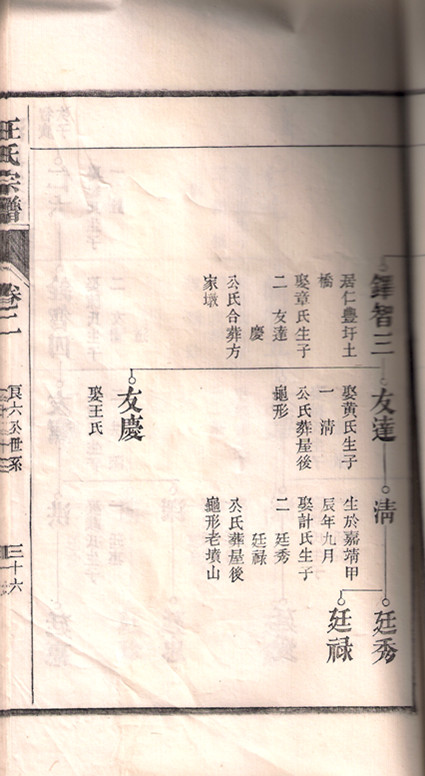 鐸智三
居仁豐圩土
橋
娶章氏生子
二 友達
慶
公氏合葬方
家墩
友達
娶黃氏生子
一 清
公氏葬屋後
龜形
友慶
娶王氏
清
生於嘉靖甲
辰年九月
娶計氏生子
二 廷秀
廷禄
公氏葬屋後
龜形老墳山
廷秀
廷禄
汪氏宗譜
卷二
良六公世系
三十六